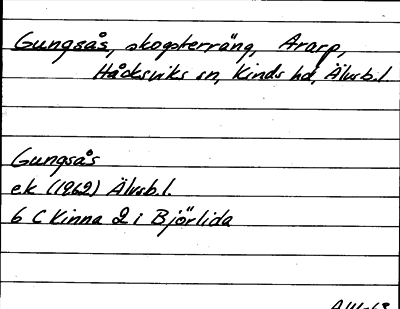 Gungsås, skogsterräng, Ararp,
Håcksviks sn, Kinds hd, Älvsb.l
Gungsås
ek (1962) Älvsb.l.
6 C Kinna 2 i Björlida